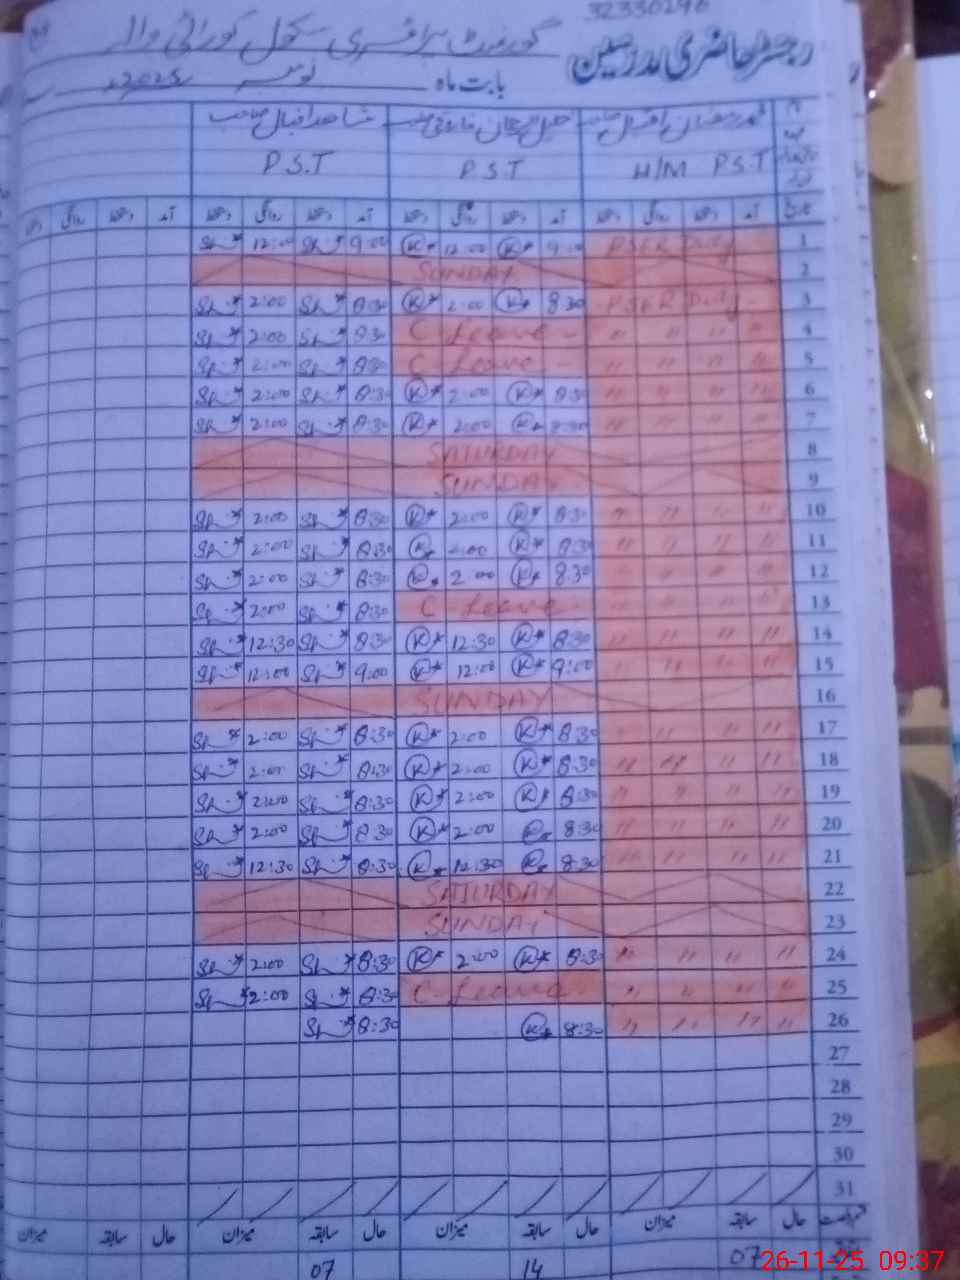 32330296
رجسٹر حاضری مدرسین گورنمنٹ پرائمری سکول کورائی والا
بابت ماہ نومبر 2025ء
محمد رمضان اقبال صاحب خلیل الرحمان فاروقی صاحب شاھد اقبال صاحب
H/M P.S.T P.S.T P.S.T
تاریخ آمد دستخط روانگی دستخط آمد دستخط روانگی دستخط آمد دستخط روانگی دستخط آمد دستخط روانگی
1 PSER Duty 9:00 K 12:00 K 9:00 Sh 12:00 Sh
2 SUNDAY
3 PSER Duty 8:30 K 2:00 K 8:30 Sh 2:00 Sh
4 " " " " C Leave 8:30 Sh 2:00 Sh
5 " " " " C Leave 8:30 Sh 2:00 Sh
6 " " " " 8:30 K 2:00 K 8:30 Sh 2:00 Sh
7 " " " " 8:30 K 2:00 K 8:30 Sh 2:00 Sh
8 SATURDAY
9 SUNDAY
10 " " " " 8:30 K 2:00 K 8:30 Sh 2:00 Sh
11 " " " " 8:30 K 2:00 K 8:30 Sh 2:00 Sh
12 " " " " 8:30 K 2:00 K 8:30 Sh 2:00 Sh
13 " " " " C Leave 8:30 Sh 2:00 Sh
14 " " " " 8:30 K 12:30 K 8:30 Sh 12:30 Sh
15 " " " " 9:00 K 12:00 K 9:00 Sh 12:00 Sh
16 SUNDAY
17 " " " " 8:30 K 2:00 K 8:30 Sh 2:00 Sh
18 " " " " 8:30 K 2:00 K 8:30 Sh 2:00 Sh
19 " " " " 8:30 K 2:00 K 8:30 Sh 2:00 Sh
20 " " " " 8:30 K 2:00 K 8:30 Sh 2:00 Sh
21 " " " " 8:30 K 12:30 K 8:30 Sh 12:30 Sh
22 SATURDAY
23 SUNDAY
24 " " " " 8:30 K 2:00 K 8:30 Sh 2:00 Sh
25 " " " " C-Leave 8:30 Sh 2:00 Sh
26 " " " " 8:30 K 8:30 Sh
27
28
29
30
31
حال سابقہ میزان حال سابقہ میزان حال سابقہ میزان حال سابقہ میزان
07 14 07
26-11-25 09:37